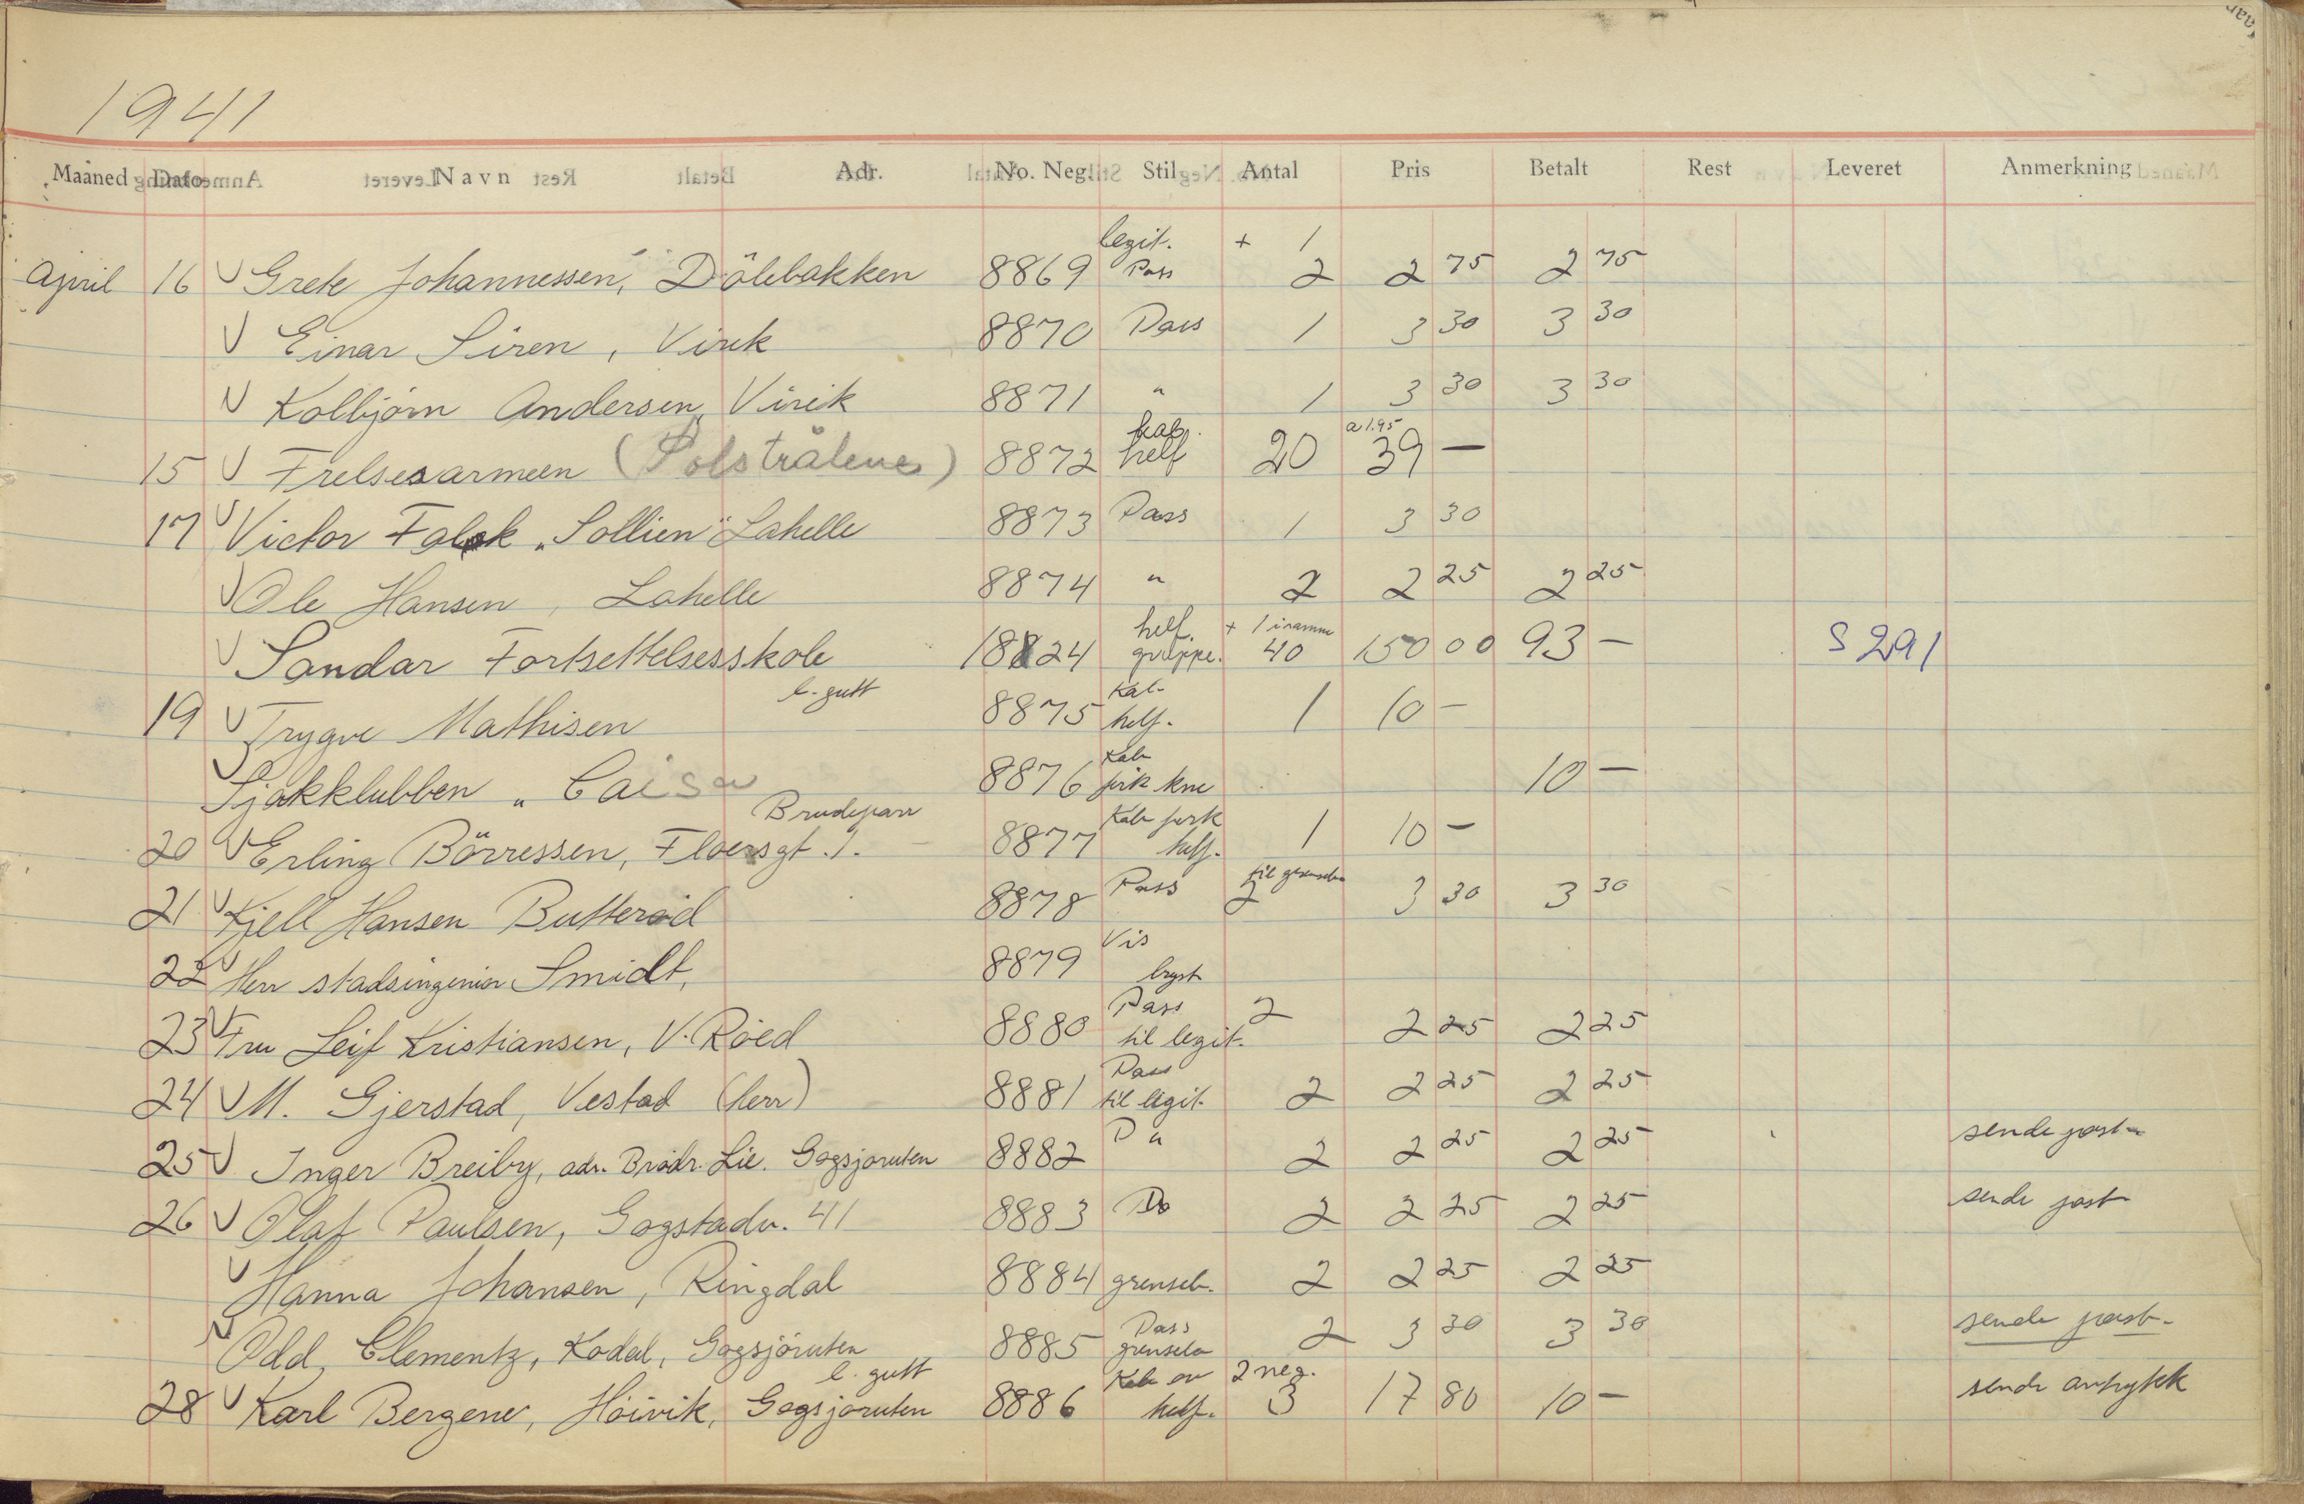 1941
Maaned Dato Navn Adr. No. Neg. Stil Antal Pris Betalt Rest Leveret Anmerkning
legit. + 1
April 16 Grete Johannessen, Dölebakken 8869 Pass 2 2 75 2 75
Einar Siren, Virik 8870 Pass 1 3 30 3 30
Kolbjørn Andersen, Virik 8871 " 1 3 30 3 30
kab. a 1.95
15 Frelsesarmeen (Polstrålene) 8872 helf 20 39 —
17 Victor Falck "Sollien" Lahelle 8873 Pass 1 3 30
Ole Hansen, Lahelle 8874 " 2 2 25 2 25
helf. + 1 i ramme
Sandar Fortsettelsesskole 18824 gruppe. 40 150 00 93 — S 291
l. gutt Kab
19 Trygve Mathisen 8875 helf. 1 10 —
Kab
Sjakklubben "Caisa 8876 kne 10 —
Brudepar Kab
20 Erling Börressen, Floersgt. 1. 8877 helf. 1 10 —
til grensebo
21 Kjell Hansen Butterød 8878 Pass 2 3 30 3 30
Vis
22 Herr stadsingeniør Smidt, 8879 bryst
Pass 2
23 Fru Leif Kristiansen, V. Röed 8880 til legit. 2 25 2 25
Pass
24 M. Gjerstad, Vestad (herr) 8881 til legit. 2 2 25 2 25
25 Inger Breiby, adr. Brødr. Lie. Gogsjøruten 8882 D " 2 2 25 2 25 sende post
26 Olaf Paulsen, Gogstadv. 41 8883 Do 2 2 25 2 25 sende post
Hanna Johansen, Ringdal 8884 grenseb. 2 2 25 2 25
Pass
Odd Clementz, Kodal, Gogsjöruten 8885 grensebo 2 3 30 3 30 sende post.
l. gutt Kab av 2 neg.
28 Karl Bergene, Höivik, Gogsjøruten 8886 helf. 3 17 80 10 — sende avtrykk